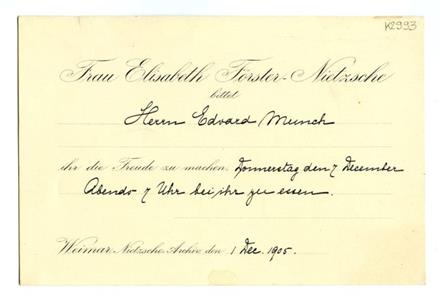 K2993
Frau Elisabeth Förster-Nietzsche
bittet
Herrn Edvard Munch
ihr die Freude zu machen, Donnerstag den 7 December
Abends 7 Uhr bei ihr zu essen.
Weimar, Nietzsche-Archiv, den 1 Dec. 1905.